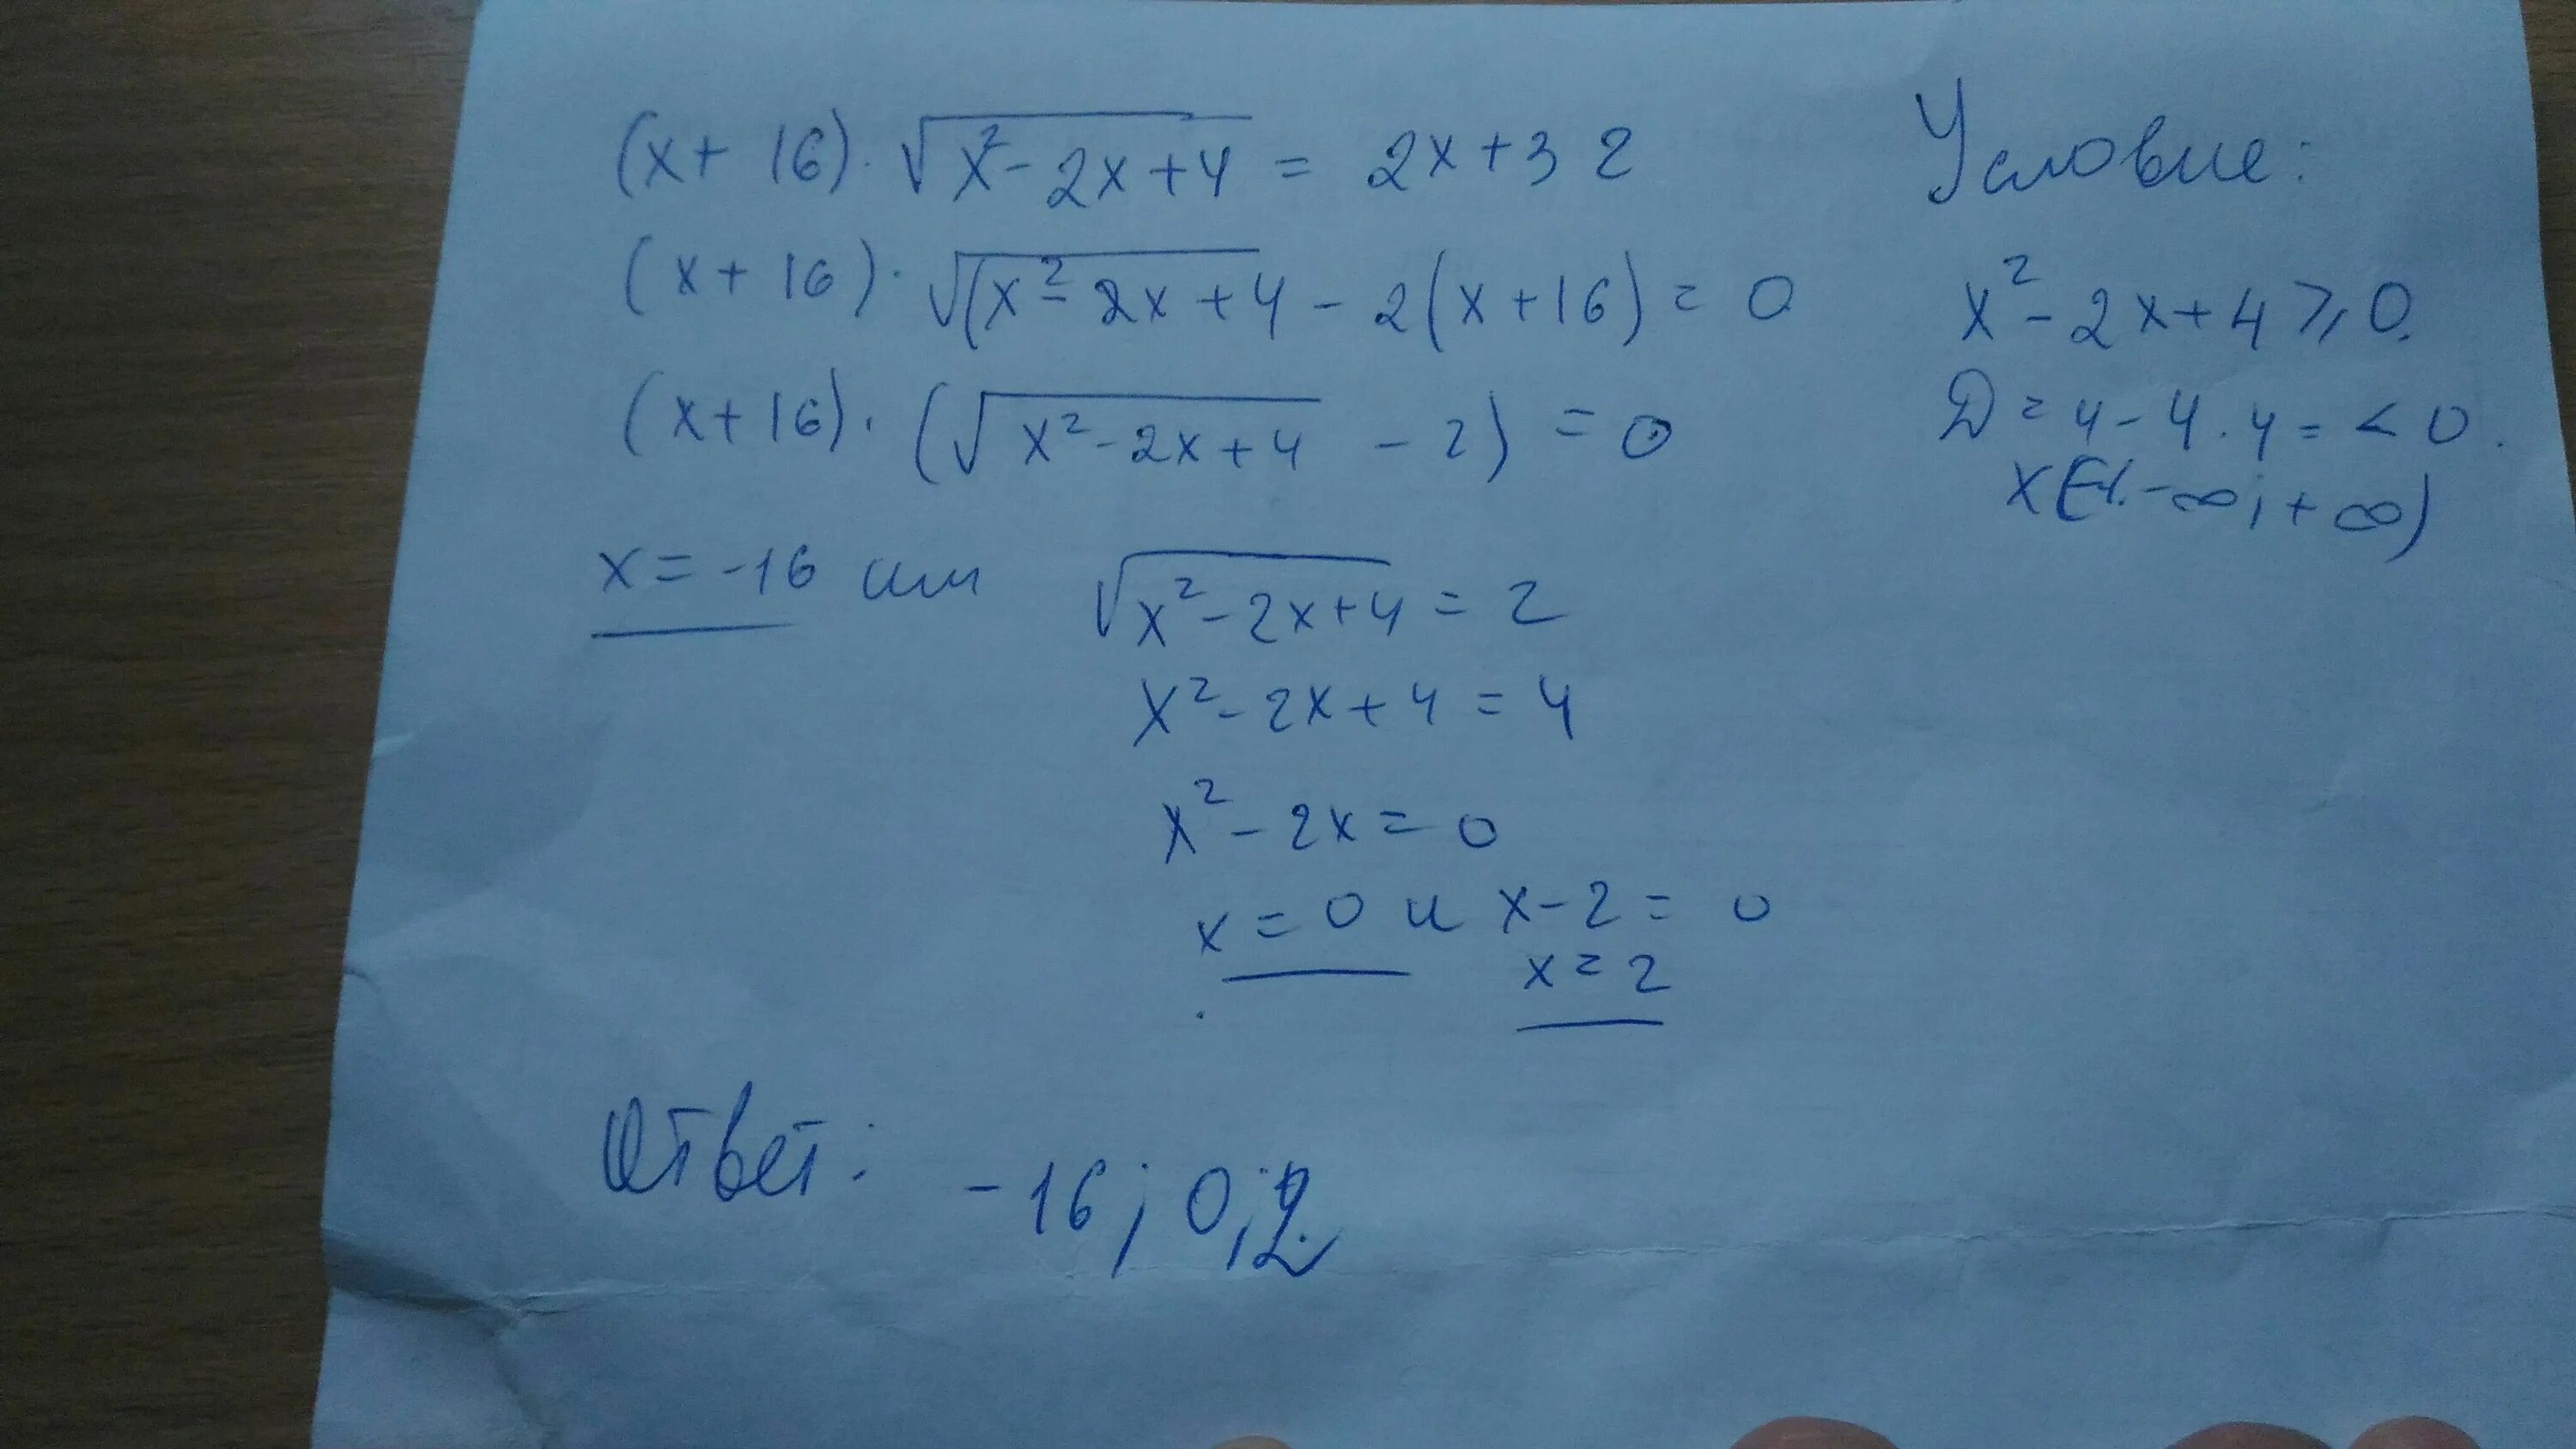 (x+16)·√x²-2x+4 = 2x+32
(x+16)·√(x²-2x+4 - 2(x+16) = 0
(x+16)·(√x²-2x+4 - 2) = 0
x = -16 или √x²-2x+4 = 2
x²-2x+4 = 4
x²-2x = 0
x = 0 и x-2 = 0
x = 2
Ответ: -16; 0; 2
Условие:
x²-2x+4 ⩾ 0.
D = 4-4·4 = < 0.
x∈(-∞; +∞)